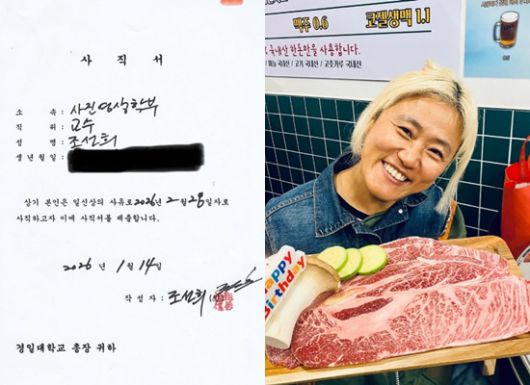 사 직 서
소 속 : 사진영상학부
직 위 : 교수
성 명 : 조선희
생 년 월 일 :
상기 본인은 일신상의 사유로 2026년 2월 28일자로
사직하고자 이에 사직서를 제출합니다.
2026년 1월 14일
작 성 자 : 조선희 (인)
경일대학교 총장 귀하
맥주 0.6
코젤생맥 1.1
국내산 한돈만을 사용합니다.
고기 국내산 / 고춧가루 국내산
HAPPY
Birthday